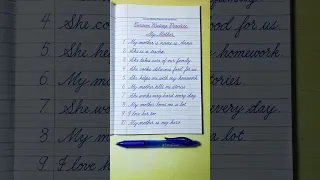 Cursive Writing Practice
My Mother
1. My mother's name is
2. She is a teacher.
3. She takes care of our family.
4. She cooks delicious food for us.
5. She helps me with my homework.
6. My mother tells me stories.
She works very hard every day.
My mother loves me a lot.
I love her too.
10. My mother is my hero.
4. She
food for us
5. She he
homework
6. My m
stories
She wo
every day
8. My m
a lot
9. I love h